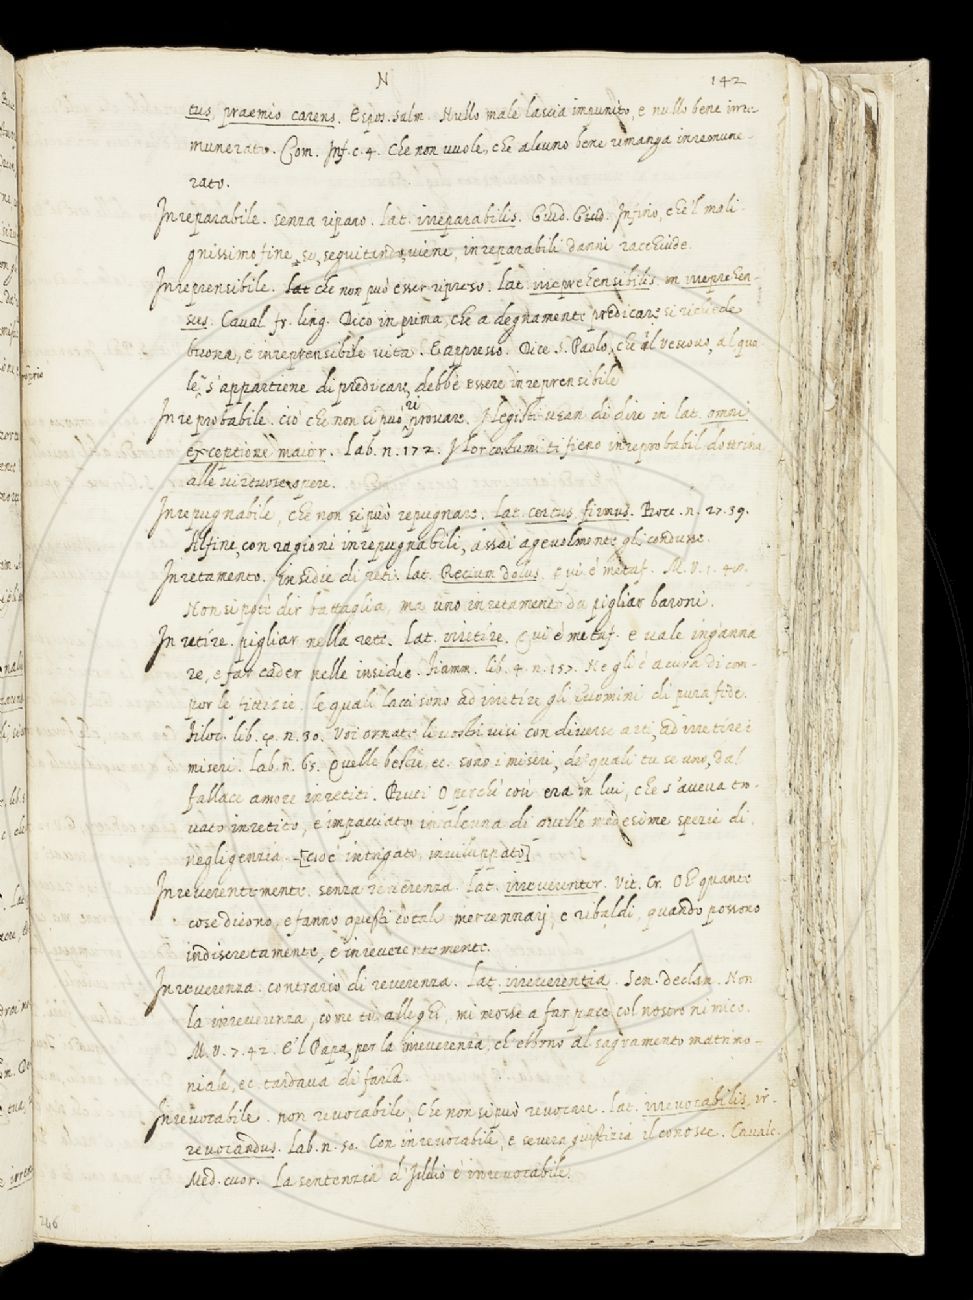 N 142
tus, praemio carens. Espos. Salm. Nullo male lascia impunito, e nullo bene irre-
munerato. Com. Inf. c. 4. Che non vuole, che alcuno bene rimanga inremune-
rato.
Inreparabile. senza riparo. Lat. irreparabilis. Guid. Giud. Infino, che 'l mali-
gnissimo fine, se, seguitando, viene, inreparabili danni racchiude.
Inreprensibile. Lat che non può esser ripreso. Lat. irreprehensibilis. inreprehen-
sus. Caval. fr. ling. Dico in prima, che a degnamente predicare si richiede
buona, e inreprensibile vita. E appresso. Dice S. Paolo, che il vescovo, al qua-
le s'appartiene di predicare, debbe essere inreprensibile
Inreprobabile. ciò che non si può riprovare. I legisti usan di dire in lat. omni
exceptione maior. Lab. n. 172. I lor costumi ti fieno inreprobabil dottrina
alle virtuose opere.
Inrepugnabile, che non si può repugnare. Lat. certus, firmus. Bocc. n. 27. 39.
Alfine, con ragioni inrepugnabili, assai agevolmente gli condusse.
Inretamento. Insidie di reti. lat. Retium dolus. e qui è metaf. M. V. 1. 45.
Non si potè dir battaglia, ma uno inretamento da pigliar baroni.
Inretire. pigliar nella rete. Lat. irretire. e qui è metaf. e vale inganna-
re, e far cader nelle insidie. Fiamm. lib. 4. n. 157. Ne gli è a cura di com-
por le fittizie. le quali lacci sono ad inretire gli huomini di pura fede.
Filoc. lib. 4. n. 30. Voi ornate li vostri visi con diverse arti, ad inretire i
miseri. Lab. n. 65. Quelle bestie, ec. sono i miseri, de' quali tu se' uno, dal
fallace amore inretiti. Buti O perchè così era in lui, che s'aveva tro-
vato inretito, e impacciato in alcuna di quelle medesime spezie di
negligenzia. [cioè intrigato, inviluppato]
Inreverentemente. senza reverenza. Lat. irreverenter. Vit. Cr. Oh quante
cose dicono, e fanno questi cotali mercennaj, e ribaldi, quando possono
indiscretamente, e inreverentemente.
Inreverenza. contrario di reverenza. Lat. irreverentia. Sen. Declam. Non
la inreverenza, come tu alleghi, mi mosse a far pace col nostro nimico.
M. V. 7. 42. E 'l Papa, per la inreverenza, ch'ebbono al sagramento matrimo-
niale, ec. tardava di farla.
Inrevocabile. non revocabile, Che non si può revocare. Lat. irrevocabilis, ir-
revocandus. Lab. n. 50. Con inrevocabile, e severa giustizia il contsec. Cavalc.
Med. cuor. La sentenzia d'Iddio è inrevocabile.
246